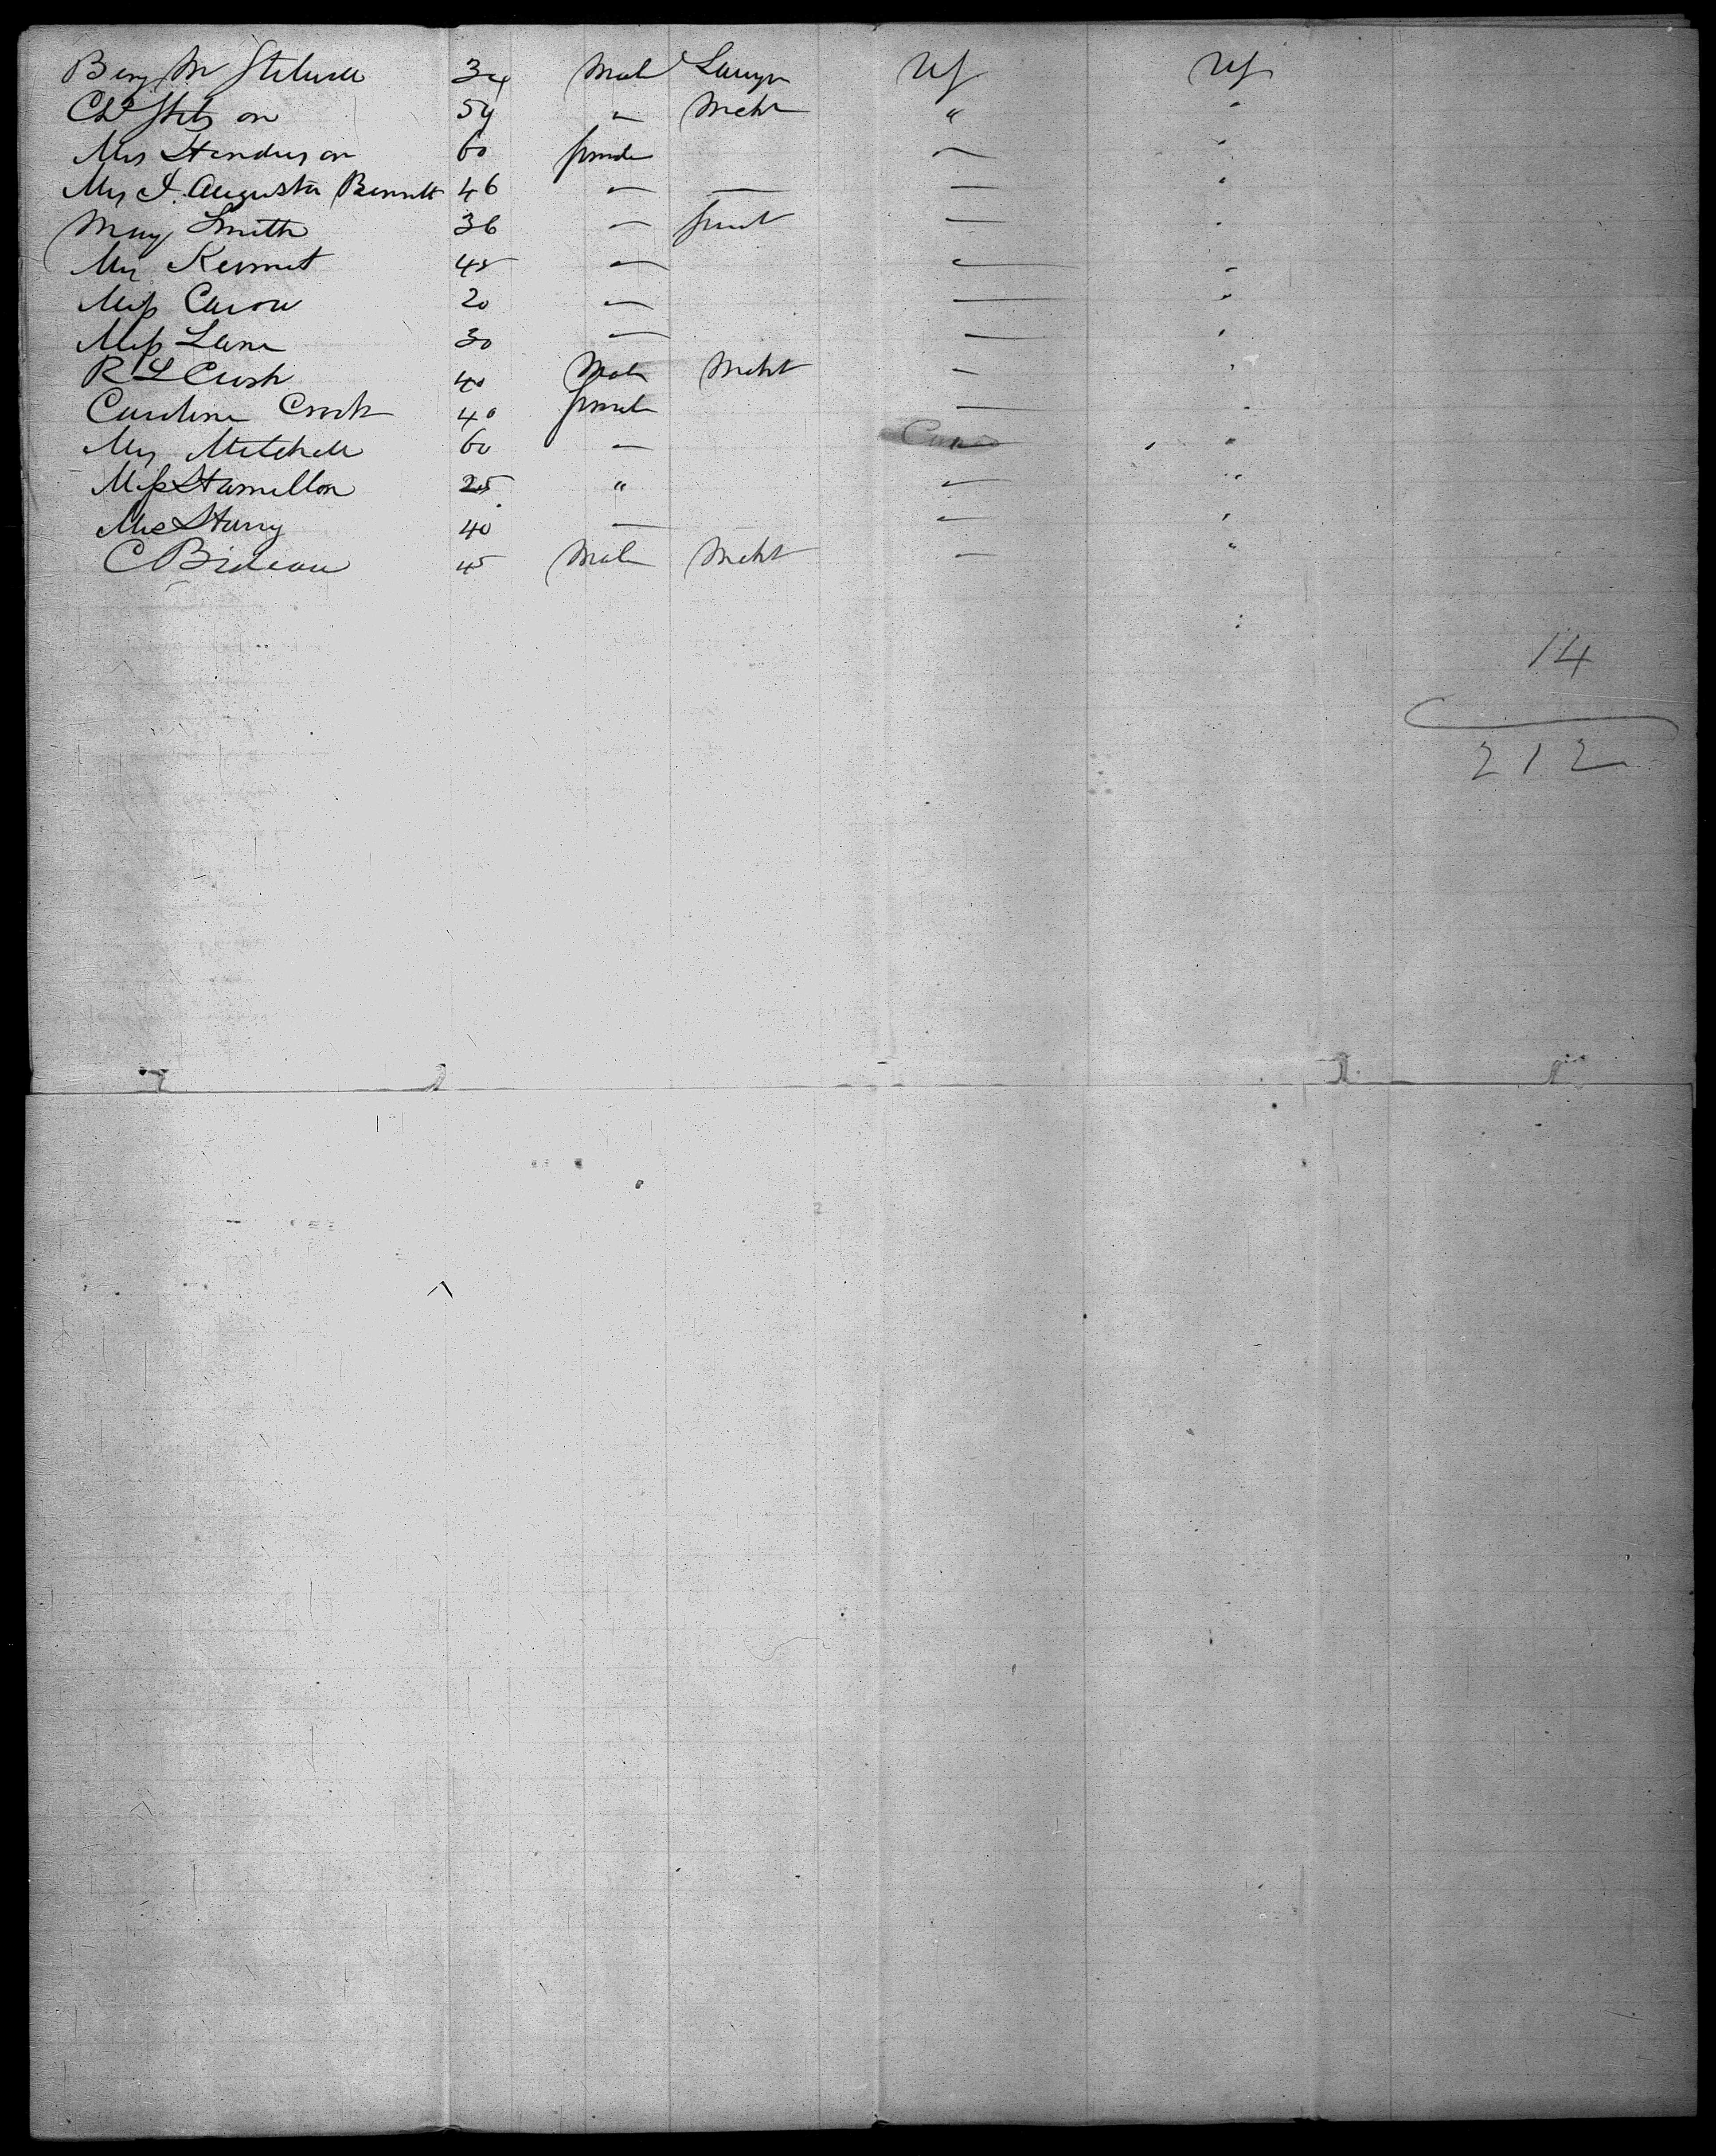 Benj M Stilwell 34 Male Lawyer US US
Chs Stetson 54 " Mcht "
Mrs Henderson 60 female — "
Mrs I. Augusta Bennett 46 — — — "
Mary Smith 36 — — "
Mrs Kermit 45 — — "
Miss Carow 20 — — "
Miss Lane 30 — — "
R L Cush 40 Male Mcht — "
Caroline Crook 40 female — "
Mrs Mitchell 60 — "
Miss Hamilton 25 " — "
Mrs Harry 40 — — "
C Bideau 45 Male Mcht — "
14
212